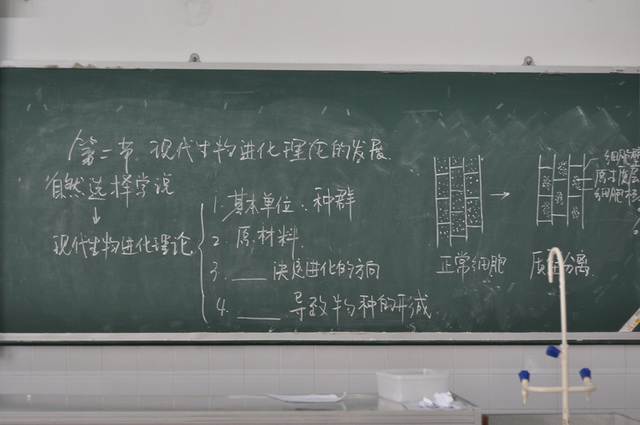 第二节 现代生物进化理论的发展
自然选择学说
↓
现代生物进化理论
1. 基本单位：种群
2. 原材料
3. ____ 决定进化的方向
4. ____ 导致物种的形成
→
正常细胞
质壁分离
细胞壁
原生质层